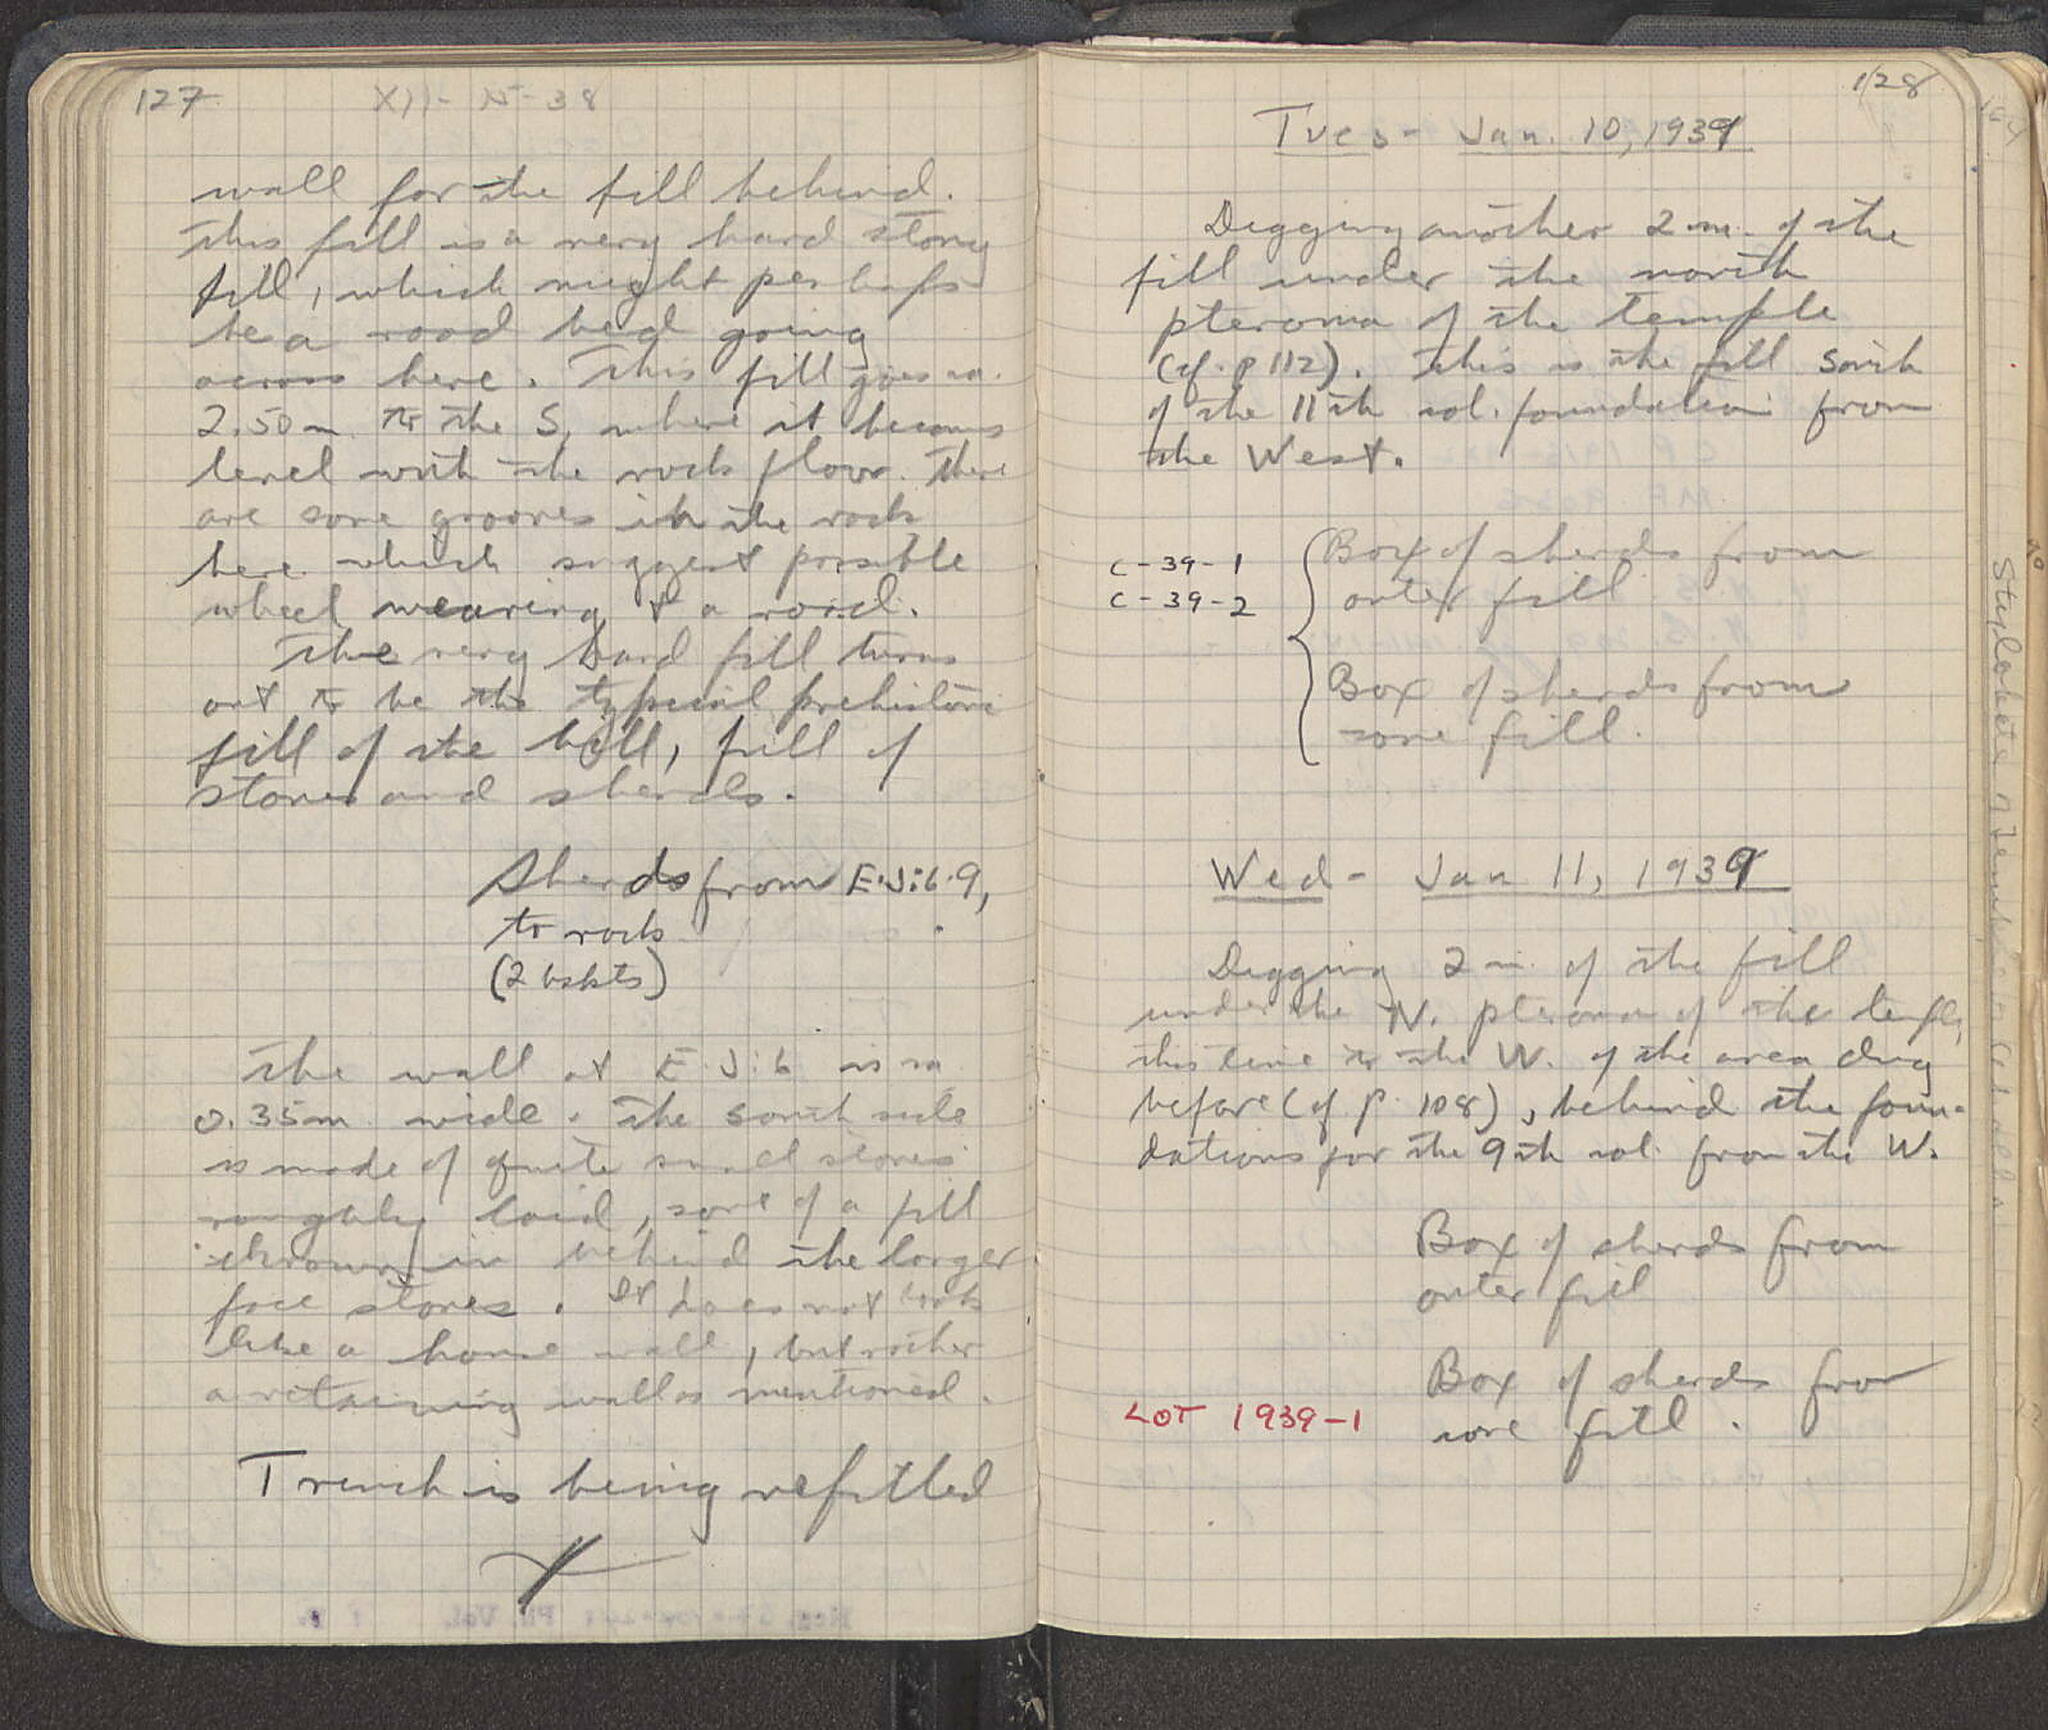 127
XII-15-38
wall for the fill behind.
This fill is a very hard stony
fill, which might perhaps
be a road bed going
across here. This fill goes ca.
2.50 m to the S, where it becomes
level with the rock floor. There
are some grooves in the rock
here which suggest possible
wheel wearing & a road.
The very hard fill turns
out to be the typical prehistoric
fill of the hill, full of
stones and sherds.
Sherds from E.J:6.9,
to rock
(2 bskts)
The wall at E.J:6 is ca
0.35m wide. The south side
is made of quite small stones
roughly laid, sort of a fill
thrown in behind the larger
face stones. It does not look
like a house wall, but rather
a retaining wall as mentioned.
Trench is being refilled
128
Tues - Jan. 10, 1939
Digging another 2 m. of the
fill under the north
pteroma of the temple
(cf. p 112). This is the fill south
of the 11th col. foundation from
the West.
C-39-1
C-39-2
Box of sherds from
outer fill
Box of sherds from
core fill.
Wed - Jan 11, 1939
Digging 2 m. of the fill
under the N. pteroma of the temple,
this time to the W. of the area dug
before (cf p. 108), behind the foun-
dations for the 9th col. from the W.
Box of sherds from
outer fill
Box of sherds from
core fill.
LOT 1939-1